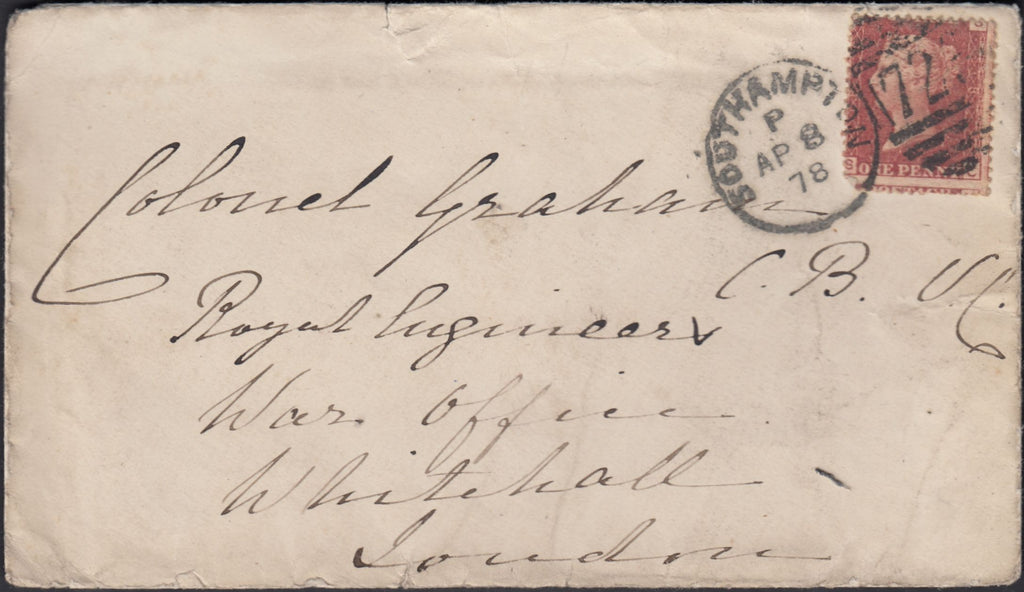 SOUTHAMPTON
P
AP 8
78
72
ONE PENNY
Colonel Graham
C. B. V.C.
Royal Engineers
War Office
Whitehall
London